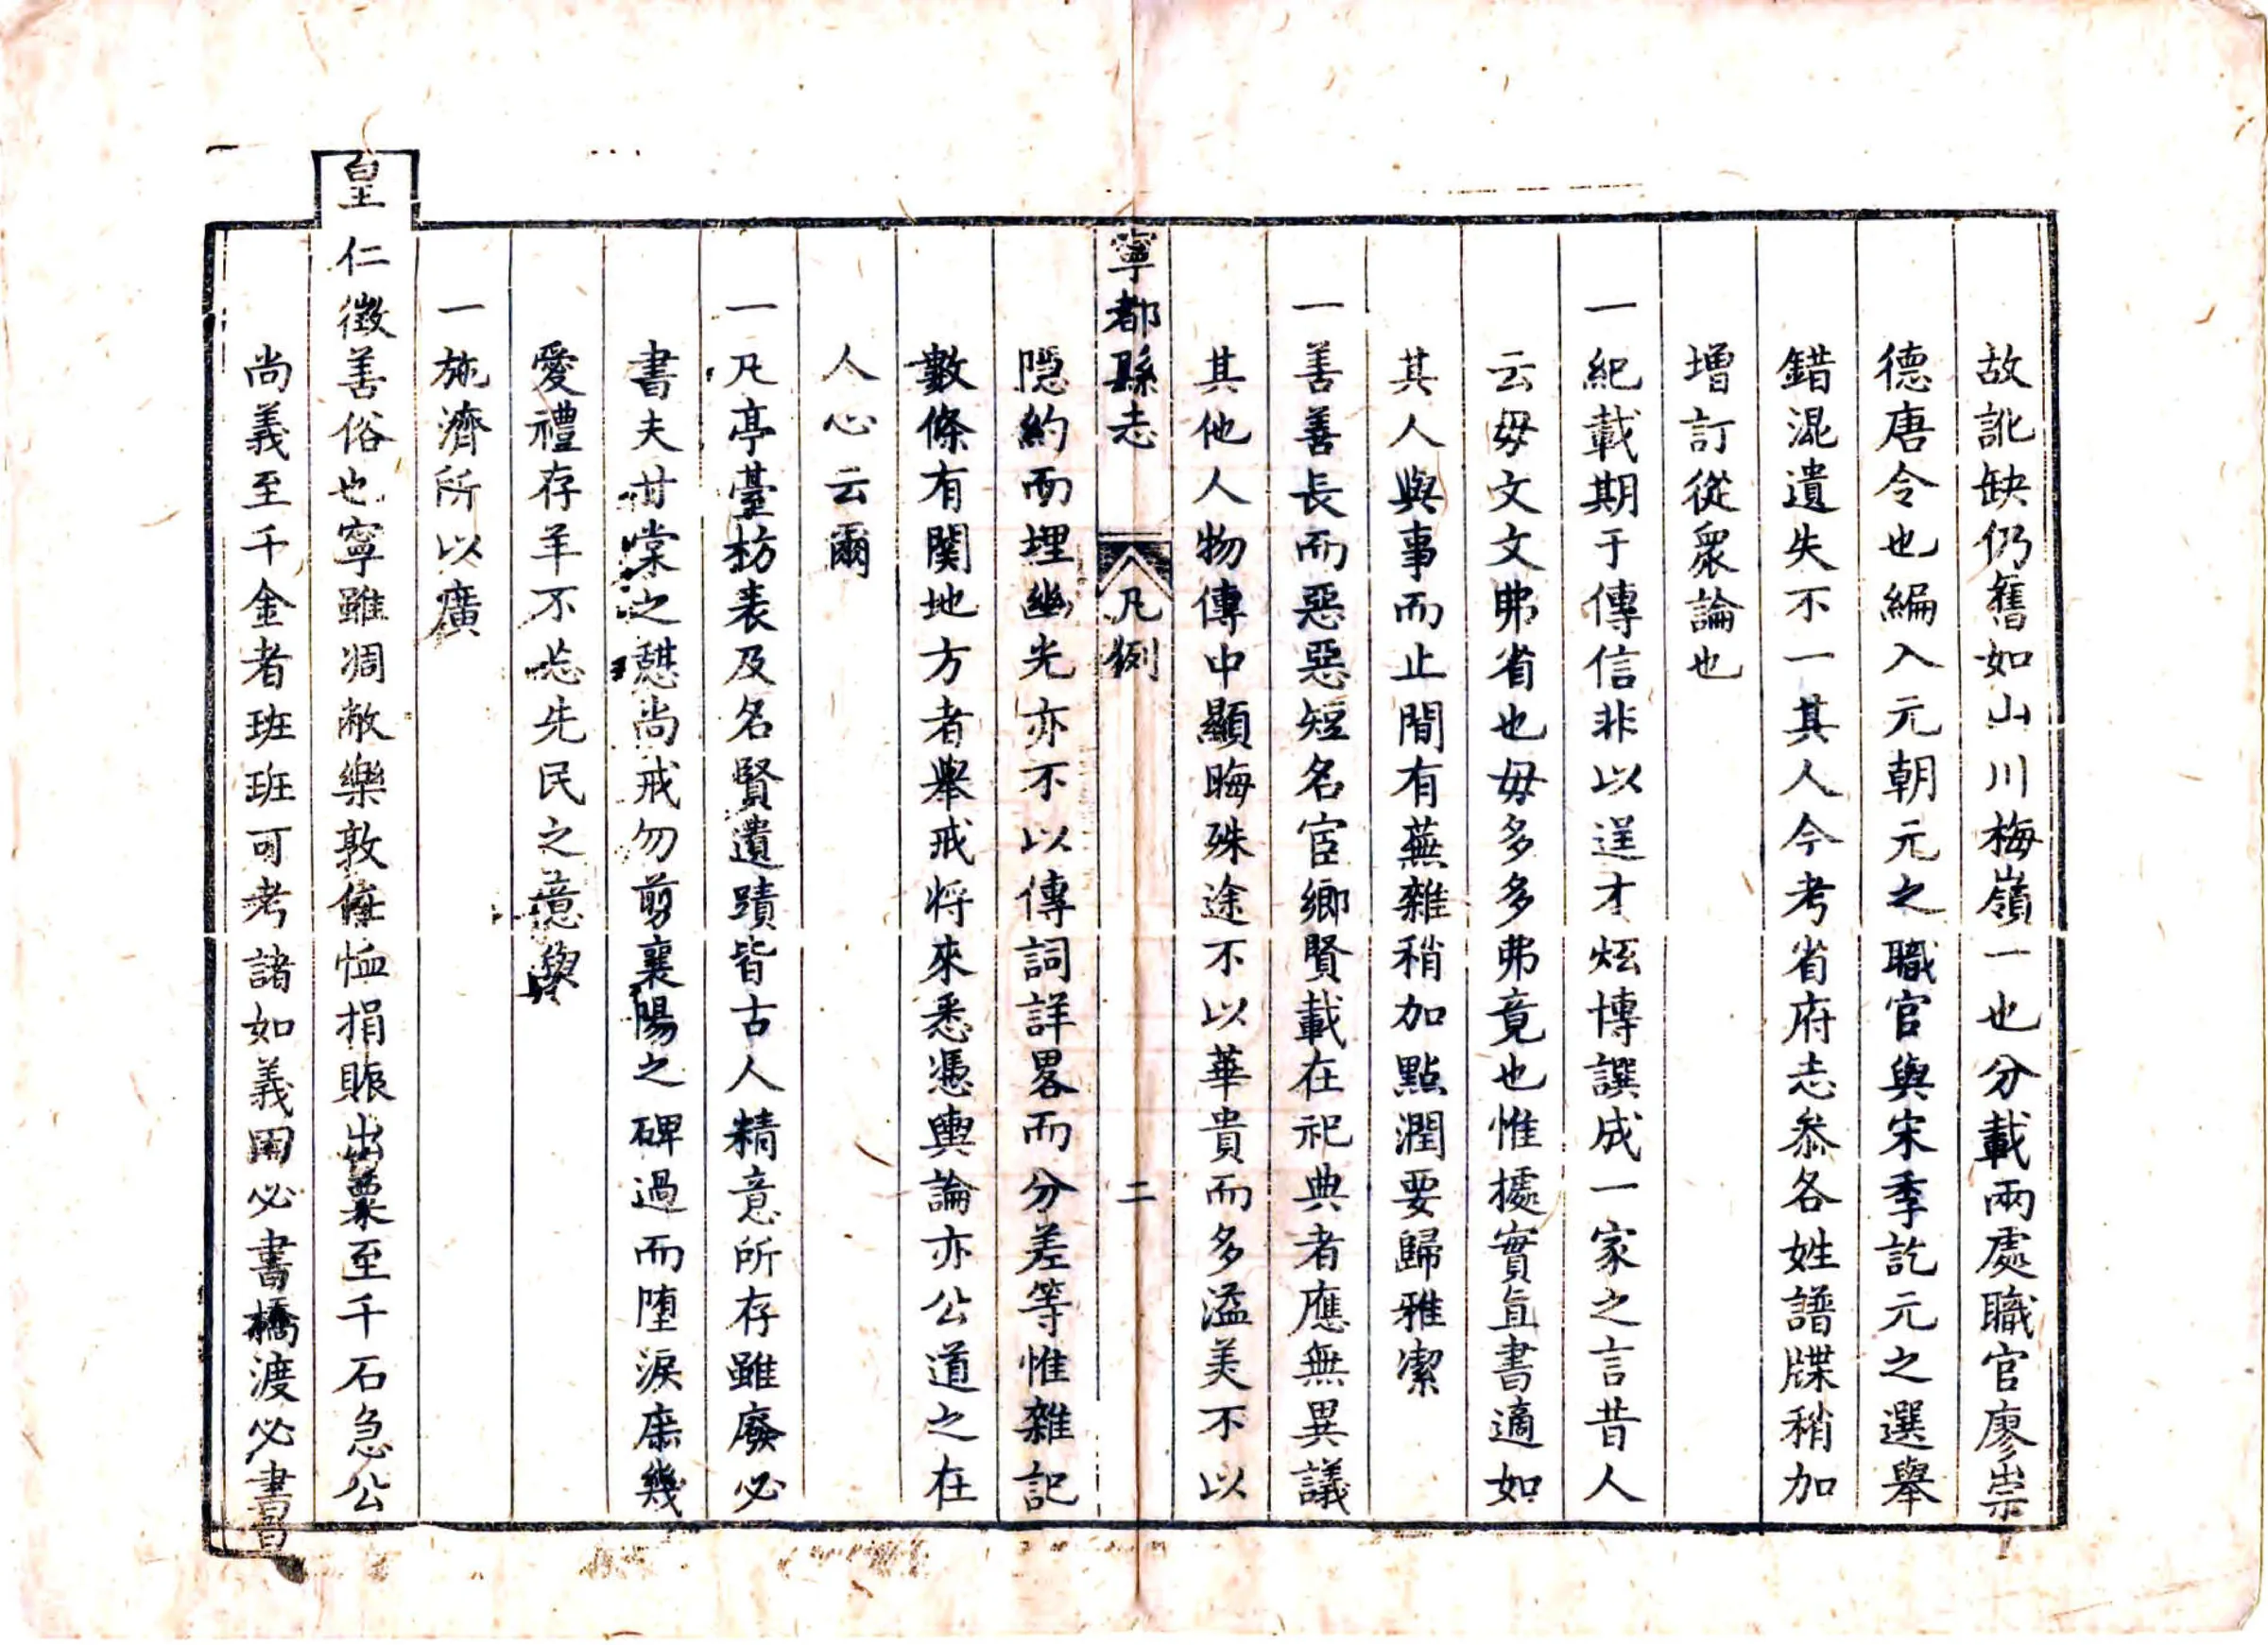 故訛缺仍舊如山川梅嶺一也分載兩處職官廖崇
德唐令也編入元朝元之職官與宋季訖元之選舉
錯混遺失不一其人今考省府志叅各姓譜牒稍加
增訂從衆論也
一紀載期于傳信非以逞才炫博譔成一家之言昔人
云毋文文弗省也毋多多弗竟也惟據實直書適如
其人與事而止間有蕪雜稍加點潤要歸雅潔
一善善長而惡惡短名宦鄉賢載在祀典者應無異議
其他人物傳中顯晦殊途不以華貴而多溢美不以
寧都縣志 凡例 二
隱約而埋幽光亦不以傳詞詳畧而分差等惟雜記
數條有関地方者舉戒將來悉憑輿論亦公道之在
人心云爾
一凡亭臺坊表及名賢遺蹟皆古人精意所存雖廢必
書夫甘棠之憩尚戒勿剪襄陽之碑過而墮淚庶幾
愛禮存羊不忘先民之意與
一施濟所以廣
皇仁徵善俗也寧雖凋敝樂敦任恤捐賑出粟至千石急公
尚義至千金者班班可考諸如義田必書橋渡必書